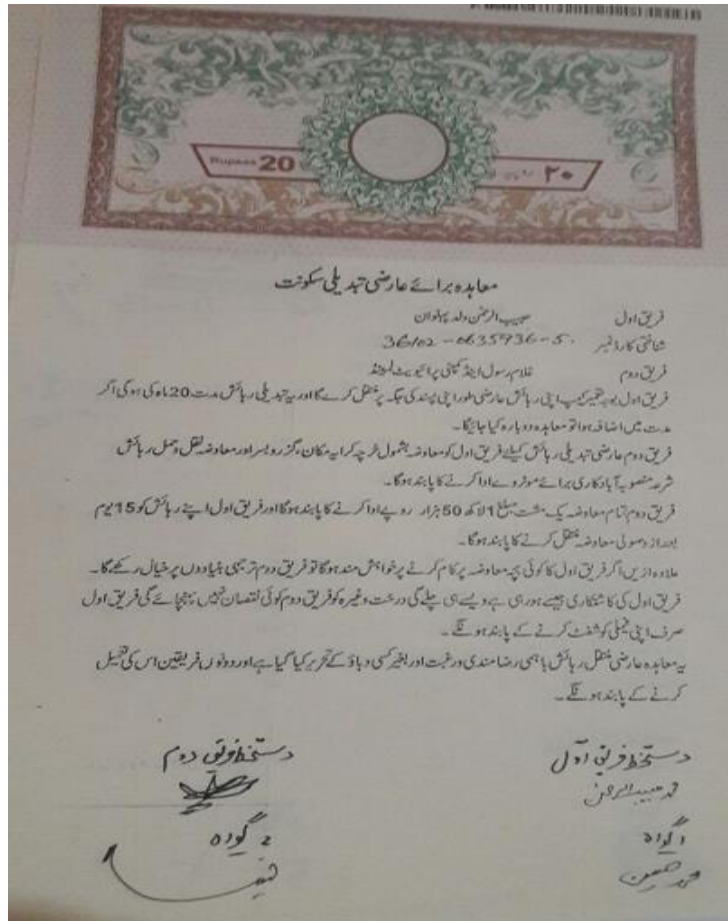 Rupees 20
۲۰
معاہدہ برائے عارضی تبدیلی سکونت
فریق اول حبیب الرحمٰن ولد پہلوان
شناختی کارڈ نمبر 36102-0635936-5
فریق دوم غلام رسول اینڈ کمپنی پرائیویٹ لمیٹڈ
فریق اول بوجہ تعمیر کیمپ اپنی رہائش عارضی طور اپنی پسند کی جگہ پر منتقل کرے گا اور یہ تبدیلی رہائش مدت 20 ماہ کی ہوگی اگر
مدت میں اضافہ ہوا تو معاہدہ دوبارہ کیا جائیگا۔
فریق دوم عارضی تبدیلی رہائش کیلئے فریق اول کو معاوضہ بشمول خرچہ کرایہ مکان، گزر و بسر اور معاوضہ نقل و حمل رہائش
شرعہ منصوبہ آبادکاری برائے موٹروے ادا کرنے کا پابند ہوگا۔
فریق دوم تمام معاوضہ یک مشت مبلغ 1 لاکھ 50 ہزار روپے ادا کرنے کا پابند ہوگا اور فریق اول اپنے رہائش کو 15 یوم
بعد از وصولی معاوضہ منتقل کرنے کا پابند ہوگا۔
علاوہ ازیں اگر فریق اول کا کوئی بچہ معاوضہ پر کام کرنے پر خواہش مند ہوگا تو فریق دوم ترجیحی بنیادوں پر خیال رکھے گا۔
فریق اول کی کاشتکاری جیسے ہو رہی ہے ویسے ہی چلے گی درخت وغیرہ کو فریق دوم کوئی نقصان نہیں پہنچائے گی فریق اول
صرف اپنی فیملی کو شفٹ کرنے کے پابند ہونگے۔
یہ معاہدہ عارضی منتقل رہائش باہمی رضا مندی و رغبت اور بغیر کسی دباؤ کے تحریر کیا گیا ہے اور دونوں فریقین اس کی تعمیل
کرنے کے پابند ہونگے۔
دستخط فریق اول دستخط فریق دوم
محمد حبیب الرحمن
1 گواہ 2 گواہ
محمد حسین